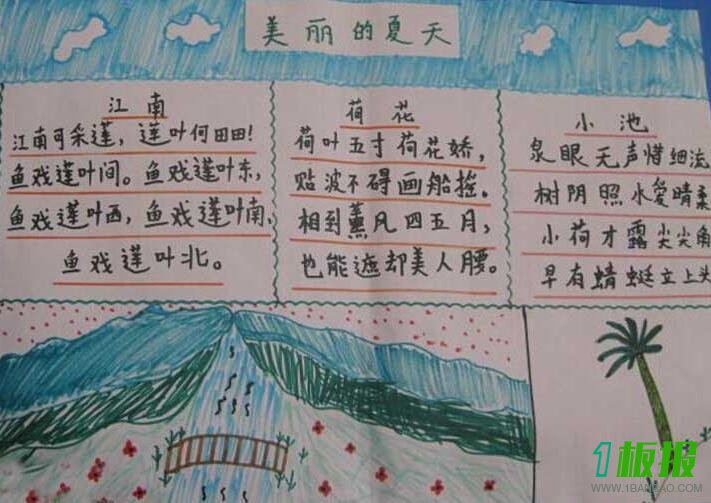 美丽的夏天
江南
江南可采莲，莲叶何田田！
鱼戏莲叶间。鱼戏莲叶东，
鱼戏莲叶西，鱼戏莲叶南，
鱼戏莲叶北。
荷花
荷叶五寸荷花娇，
贴波不碍画船摇。
相到薰风四五月，
也能遮却美人腰。
小池
泉眼无声惜细流
树阴照水爱晴柔
小荷才露尖尖角
早有蜻蜓立上头
1板报
WWW.1BANBAO.COM